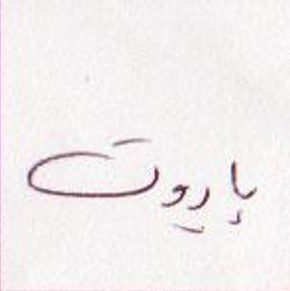 بايروت